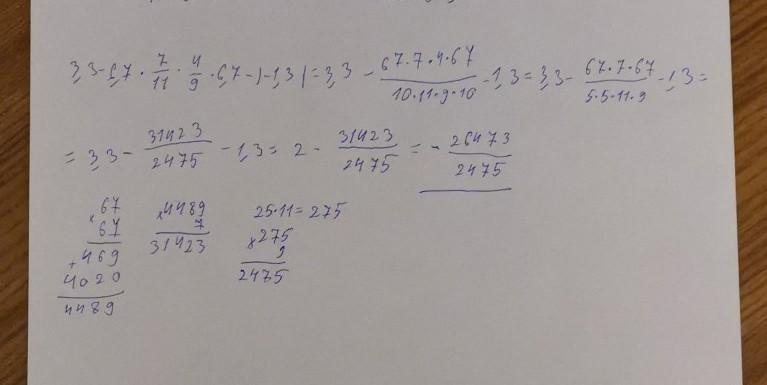 3,3-6,7·7/11·4/9·6,7-|-1,3|=3,3 - 67·7·4·67/10·11·9·10 -1,3=3,3- 67·7·67/5·5·11·9 -1,3=
= 3,3 - 31423/2475 -1,3= 2 - 31423/2475 = - 26473/2475
×67
67
+469
4020
4489
×4489
7
31423
25·11=275
×275
9
2475